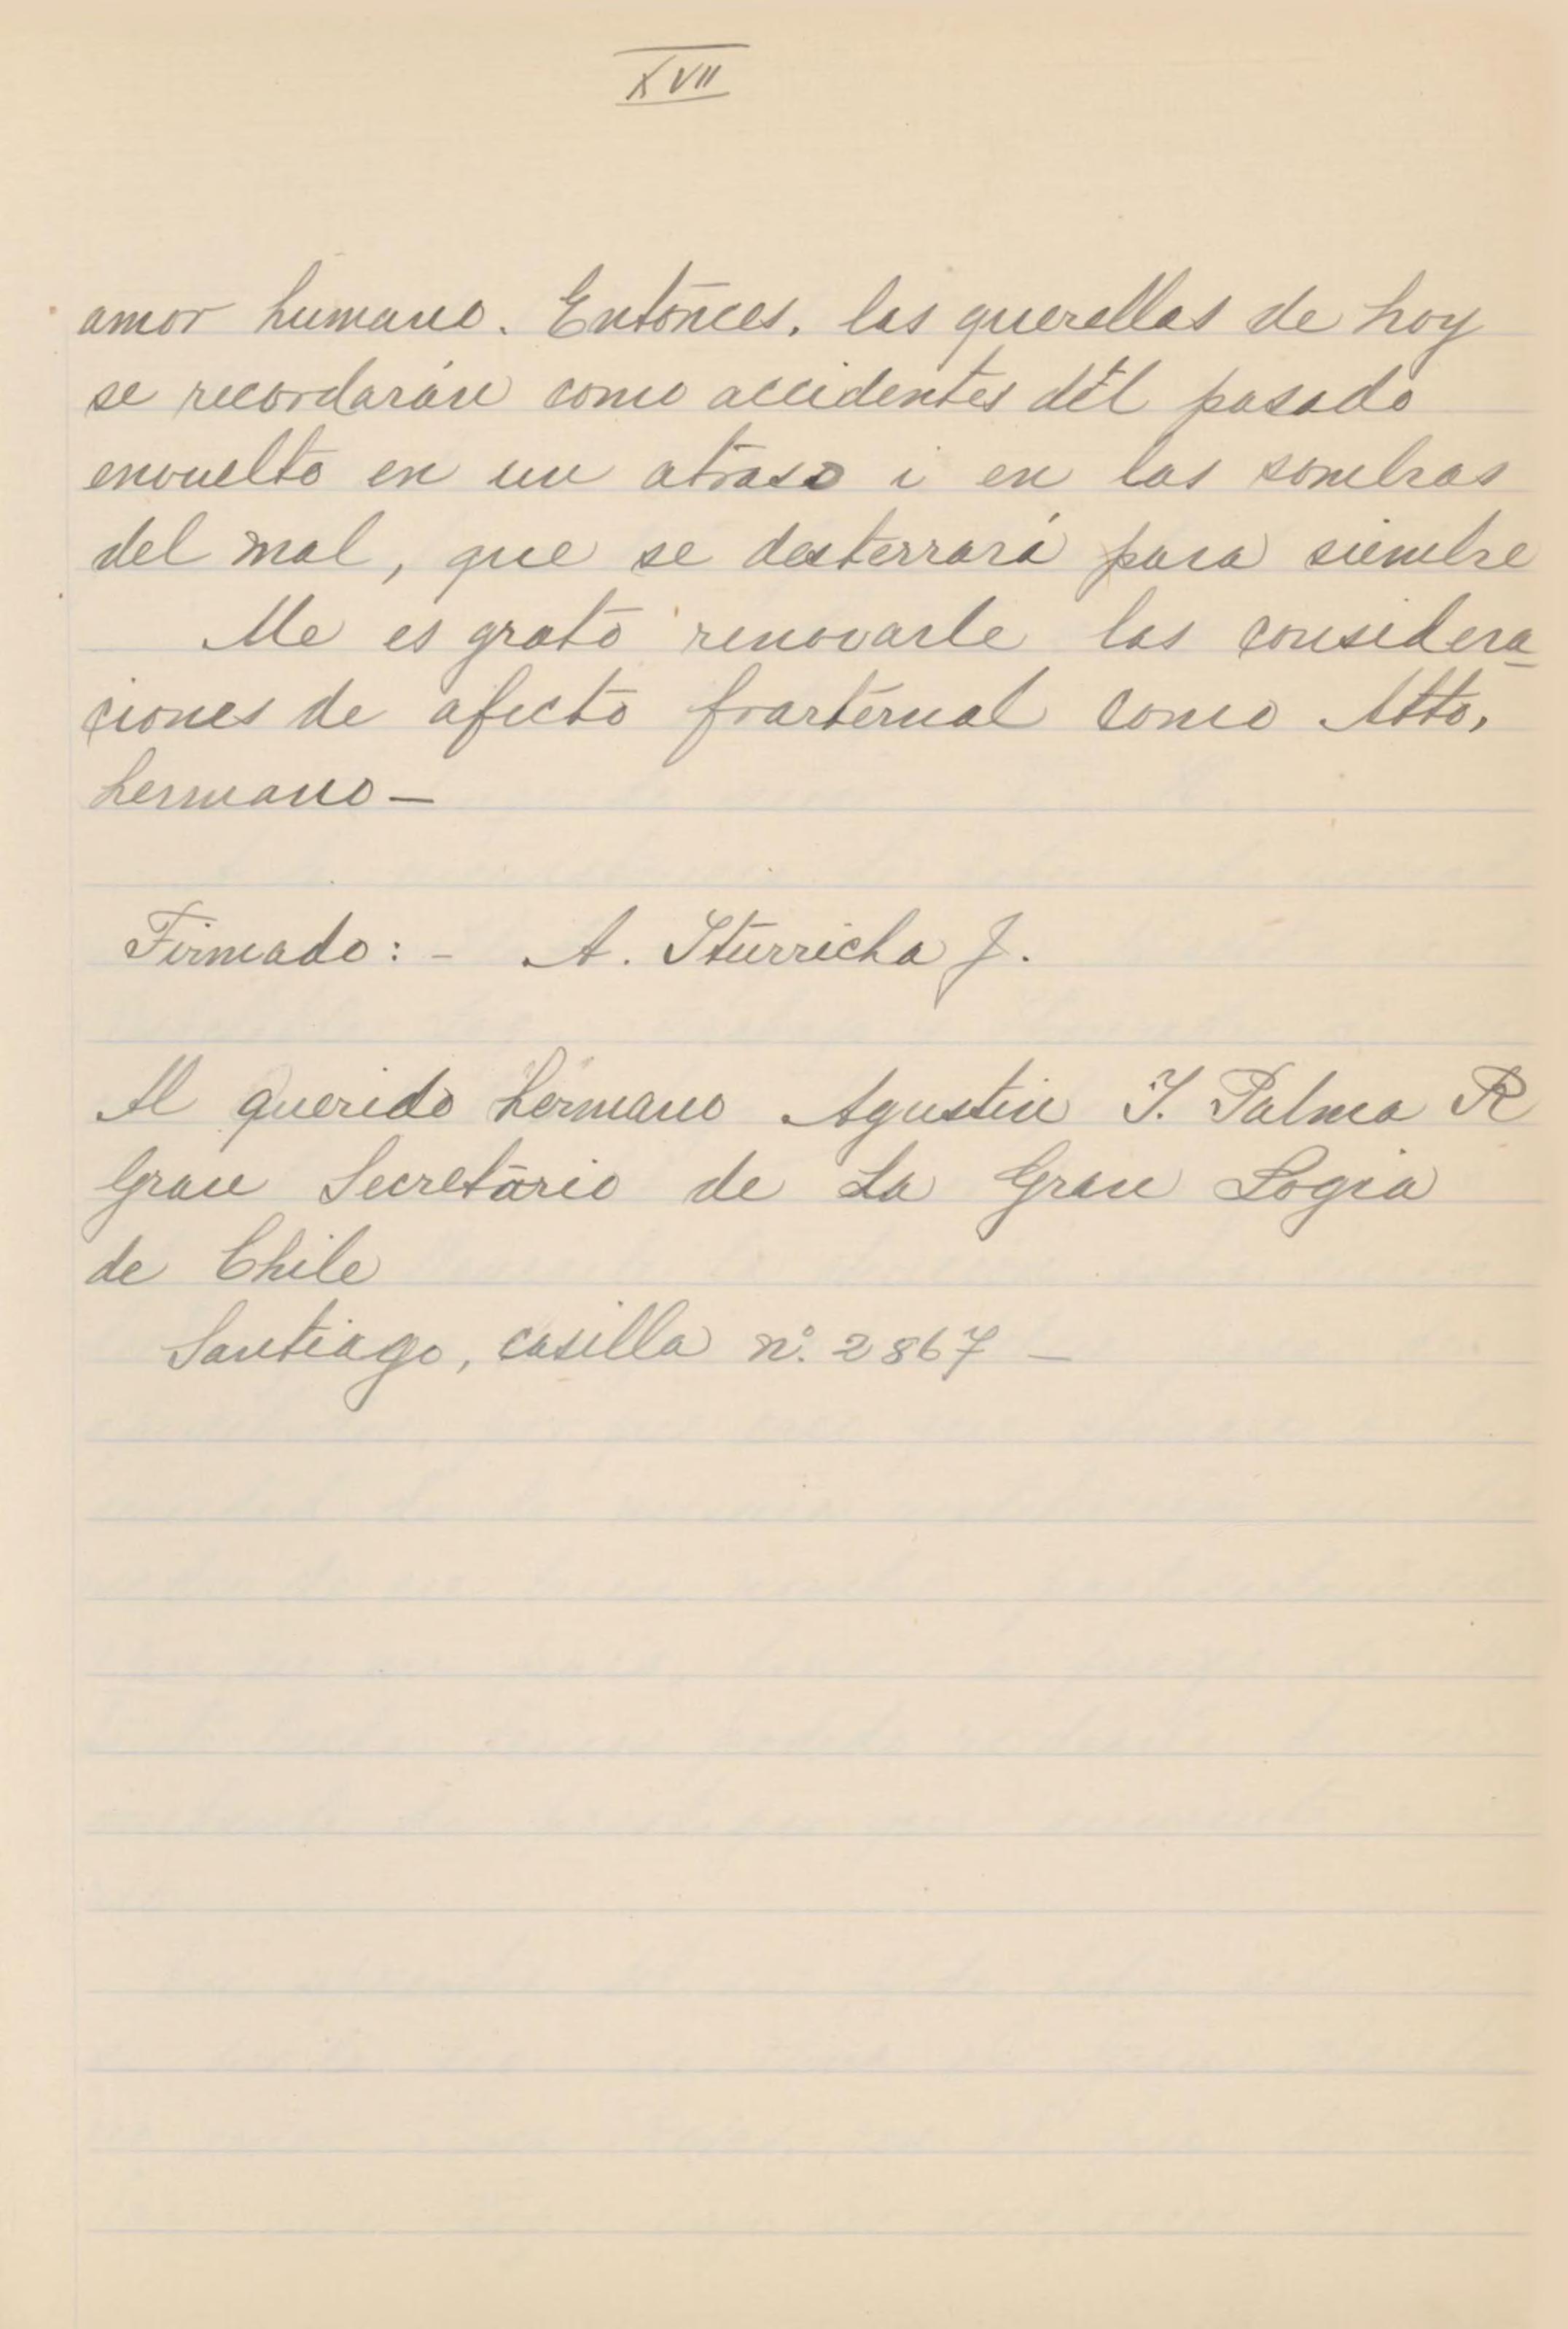 XVII
amor humano. Entonces, las querellas de hoy
se recordarán como accidentes del pasado
envuelto en un atraso i en las sombras
del mal, que se desterrará para siembre
Me es grato renovarle las considera-
ciones de afecto frarternal como Atto,
hermano—
Firmado: - A. Iturricha J.
Al querido hermano Agustin I. Palma R
Gran Secretario de La Gran Logia
de Chile
Santiago, casilla nº. 2867 —